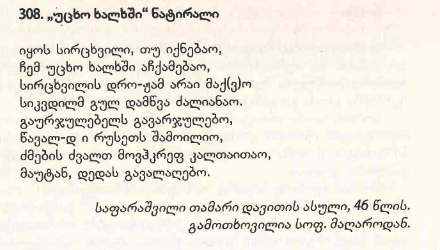 308. „უცხო ხალხში“ ნატირალი
იყოს სირცხვილი, თუ იქნებაო,
ჩემ უცხო ხალხში აჩქამებაო,
სირცხვილის დრო-ჟამ არაი მაქ(ვ)ო
სიკვდილმ გულ დამწვა ძალიანაო.
გაურჯულებელს გავარჯულებო,
წავალ-დ ი რუსეთს შამოილიო,
ძმების ძვალთ მოვჰკრეფ კალთაითაო,
მაუტან, დედას გავალაღებო.
საფარაშვილი თამარი დავითის ასული, 46 წლის.
გამოთხოვილია სოფ. მაღაროდან.